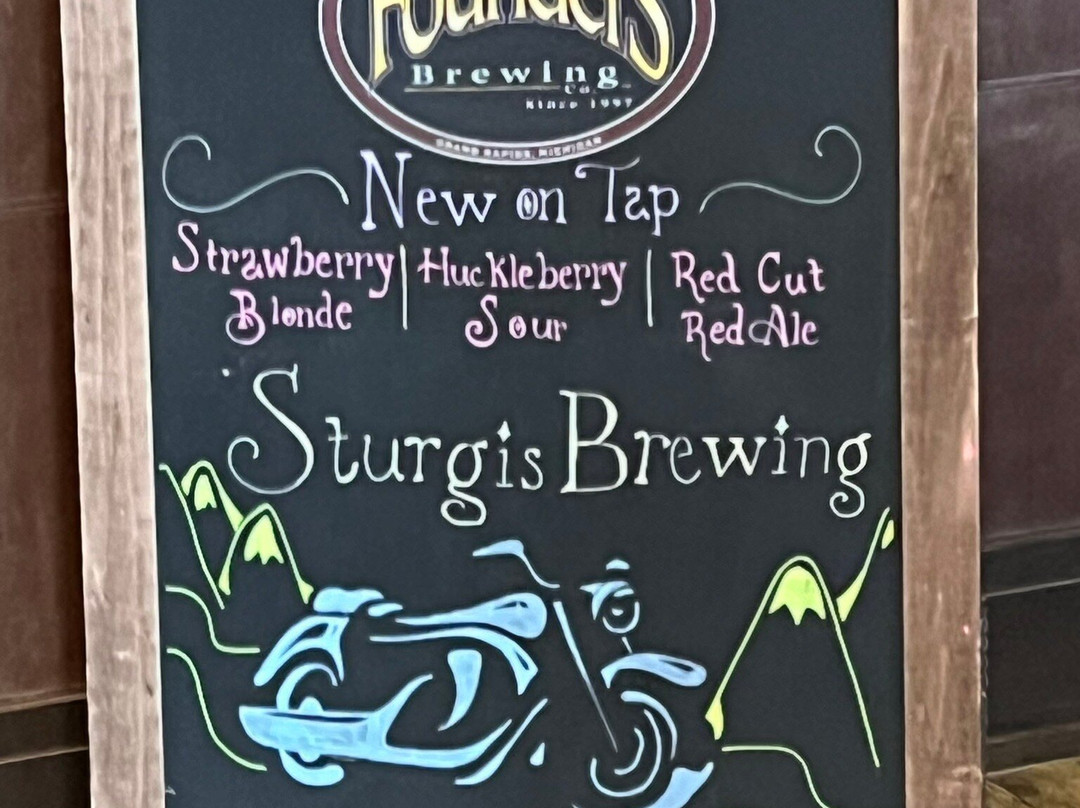 Founders
Brewing
Co.
Since 1997
GRAND RAPIDS, MICHIGAN
New on Tap
Strawberry Blonde
Huckleberry Sour
Red Cut Red Ale
Sturgis Brewing